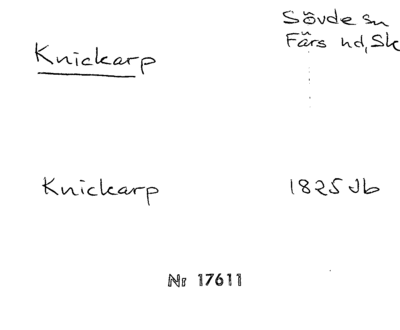 Sövde sn
Färs hd, Sk
Knickarp
Knickarp 1825 Jb
Nr 17611